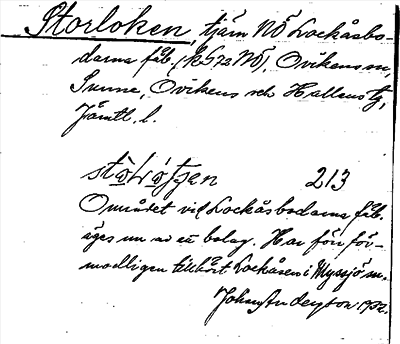 Storloken, tjärn NÖ Lockåsbo-
darna fäb. (k 572 NÖ), Ovikens sn,
Sunne, Ovikens och Hallens tg,
Jämtl. l.
213
Området vid Lockåsbodarna fäb.
äges nu av ett bolag. Har förr för-
modligen tillhört Lockåsen i Myssjö sn.
Johan Anderson 1932.